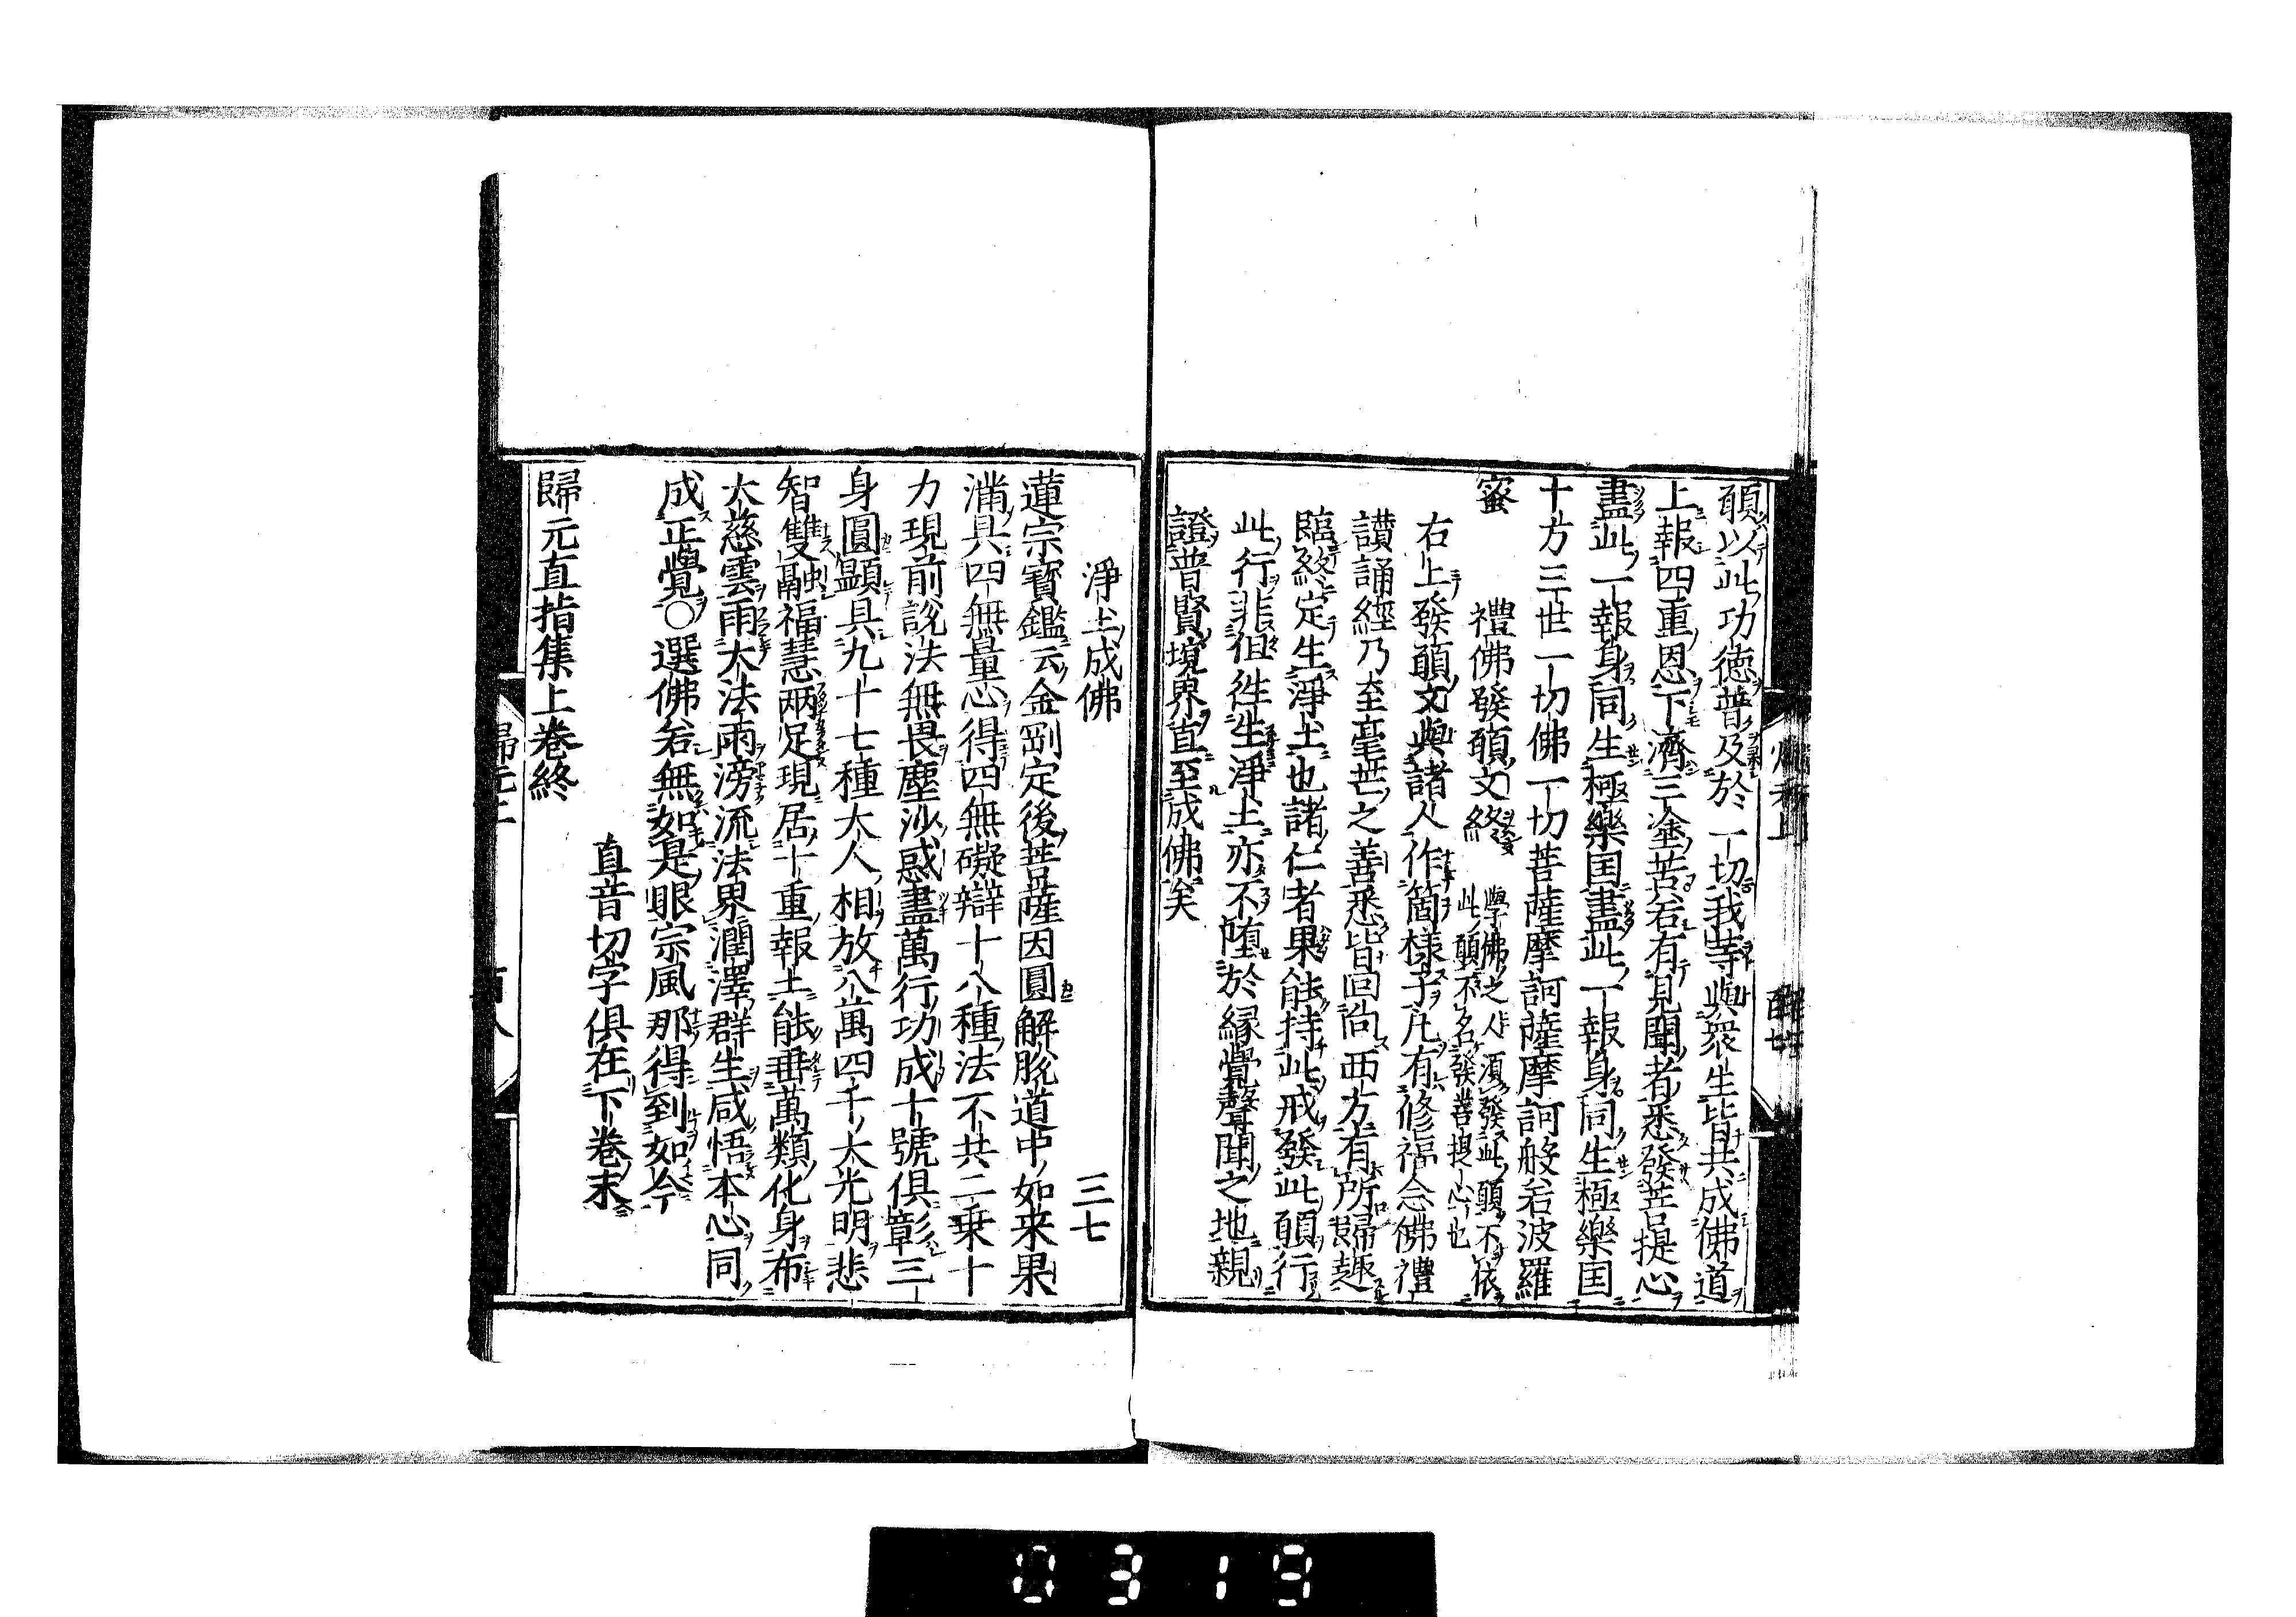 願以此功德普及於一切我等與衆生皆共成佛道
上報四重恩下濟三塗苦若有見聞者悉發菩提心
盡此一報身同生極樂国盡此一報身同生極樂国
十方三世一切佛一切菩薩摩訶薩摩訶般若波羅
蜜
禮佛發願文終
學佛之人須發此願不依
此願不名發菩提心也
右上發願文與諸人作箇樣子凡有修福念佛禮
讚誦經乃至毫芒之善悉皆回向西方有所歸趣
臨終定生淨土也諸仁者果能持此戒發此願行
此行非但徃生淨土亦不墮於縁覺聲聞之地親
證普賢境界直至成佛矣
淨土成佛　三七
蓮宗寳鑑云金剛定後菩薩因圓解脫道中如来果
滿具四無量心得四無礙辯十八種法不共二乗十
力現前說法無畏塵沙惑盡萬行功成十號俱彰三
身圓顯具九十七種大人相放八萬四千大光明悲
智雙融福慧兩足現居十重報土能垂萬類化身布
大慈雲雨大法雨滂流法界潤澤群生咸悟本心同
成正覺○選佛若無如是眼宗風那得到如今
直音切字俱在下卷末
歸元直指集上卷終